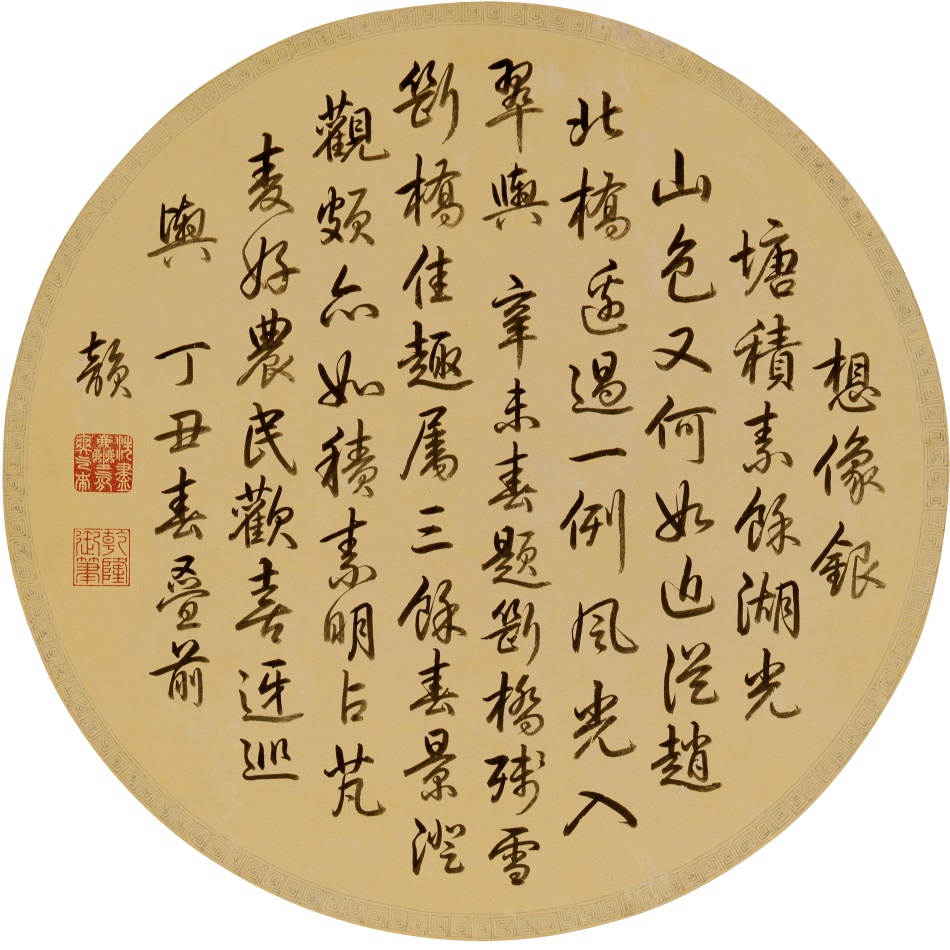 想像銀
塘積素餘湖光
山色又何如近從趙
北橋邊過一例風光入
翠輿 辛未春題斷橋殘雪
斷橋佳趣屬三餘春景澄
觀頗亦如積素明占芃
麥好農民歡喜迓巡
輿 丁丑春疊前
韻
洗盡塵氛爽氣來
乾隆御筆